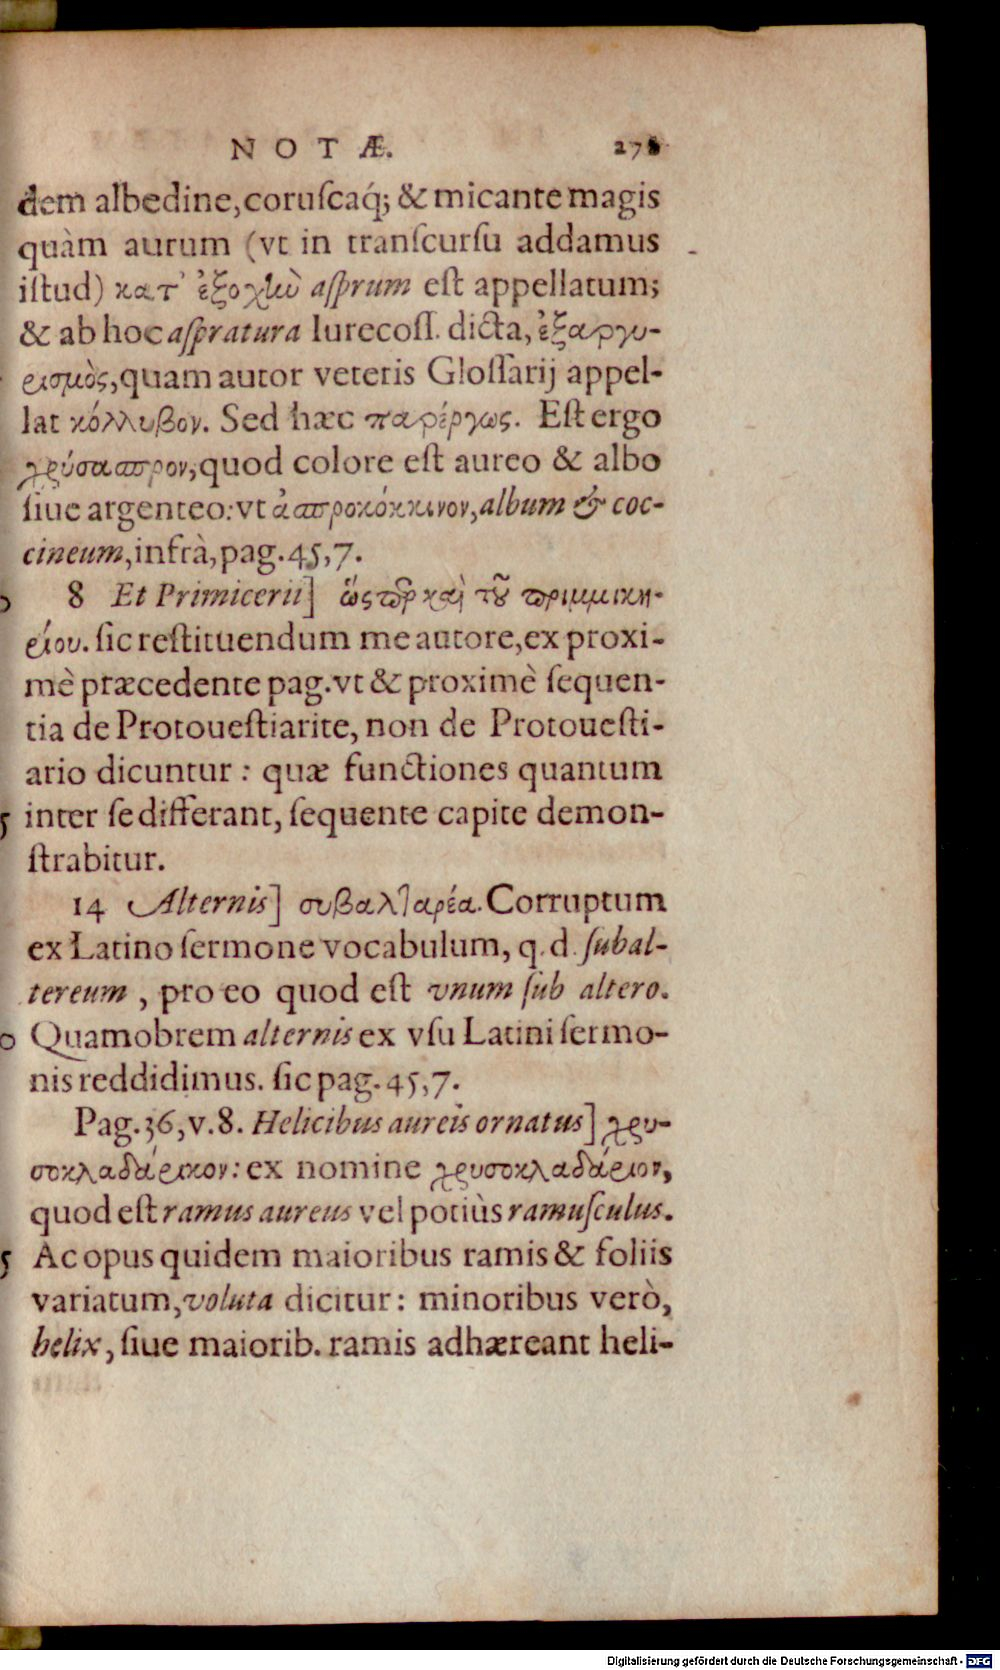 NOTÆ. 278
dem albedine, coruſcaq́; & micante magis
quàm aurum (vt in tranſcurſu addamus
iſtud) κατ' ἐξοχὴν aſprum eſt appellatum;
& ab hoc aſpratura Iurecoſſ. dicta, ἐξαργυ-
ρισμὸς, quam autor veteris Gloſſarij appel-
lat κόλλυβον. Sed hæc παρέργως. Eſt ergo
χρύσασπρον, quod colore eſt aureo & albo
ſiue argenteo: vt ἀσπροκόκκινον, album & coc-
cineum, infrà, pag. 45, 7.
8 Et Primicerii] ὥσπερ καὶ τοῦ πριμμικη-
ρίου. ſic reſtituendum me autore, ex proxi-
mè præcedente pag. vt & proximè ſequen-
tia de Protoueſtiarite, non de Protoueſti-
ario dicuntur: quæ functiones quantum
5 inter ſe differant, ſequente capite demon-
ſtrabitur.
14 Alternis] συβαλταρέα. Corruptum
ex Latino ſermone vocabulum, q. d. ſubal-
tereum, pro eo quod eſt vnum ſub altero.
0 Quamobrem alternis ex vſu Latini ſermo-
nis reddidimus. ſic pag. 45, 7.
Pag. 36, v. 8. Helicibus aureis ornatus] χρυ-
σοκλαδάρικον: ex nomine χρυσοκλαδάριον,
quod eſt ramus aureus vel potiùs ramuſculus.
5 Ac opus quidem maioribus ramis & foliis
variatum, voluta dicitur: minoribus verò,
helix, ſiue maiorib. ramis adhæreant heli-
Digitalisierung gefördert durch die Deutsche Forschungsgemeinschaft - DFG